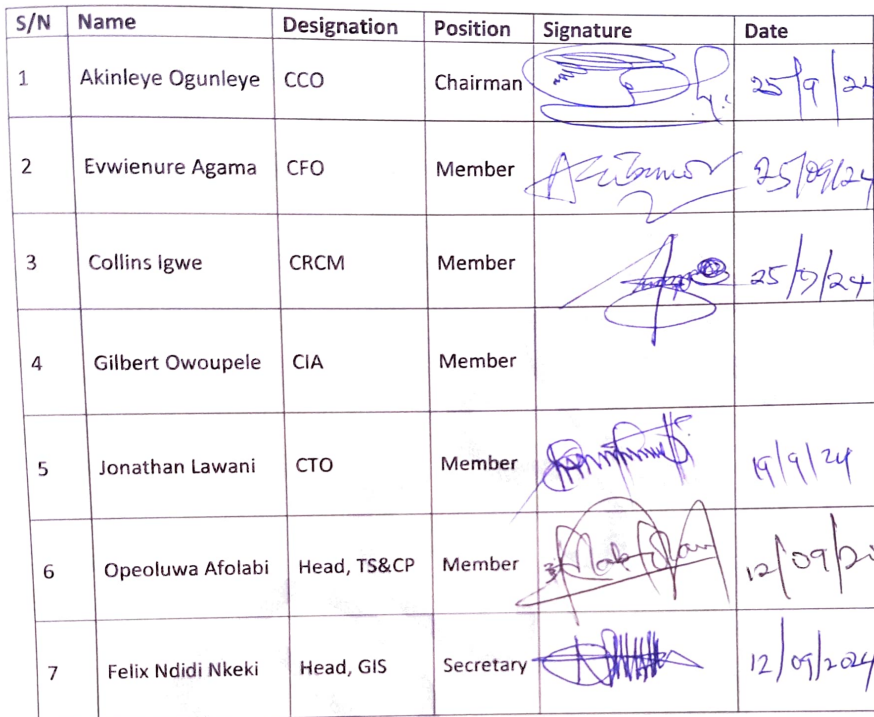 S/N Name Designation Position Signature Date
1 Akinleye Ogunleye CCO Chairman 25/9/24
2 Evwienure Agama CFO Member 25/09/24
3 Collins Igwe CRCM Member 25/9/24
4 Gilbert Owoupele CIA Member
5 Jonathan Lawani CTO Member 19/9/24
6 Opeoluwa Afolabi Head, TS&CP Member 12/09/2
7 Felix Ndidi Nkeki Head, GIS Secretary 12/09/2024